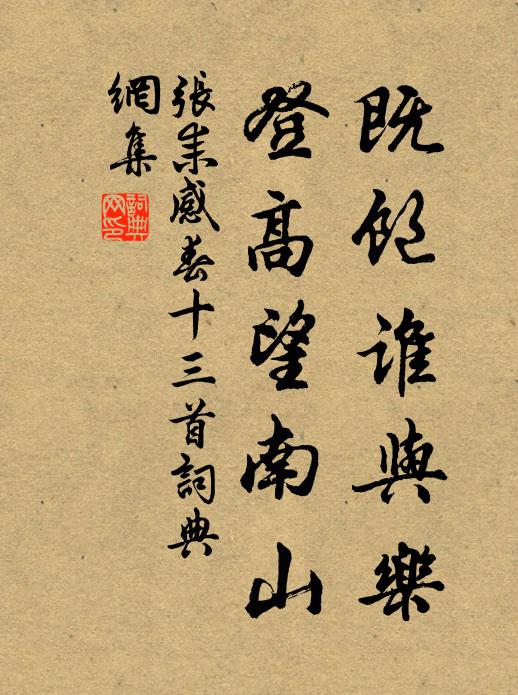 既饱谁與樂
登高望南山
張耒感春十三首詞典
網集
詞典网印